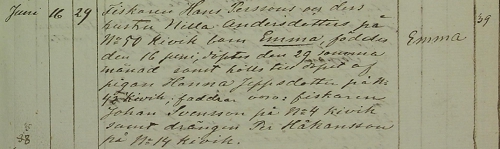 Juni 16 29 Fiskaren Hans Perssons og dess
hustru Hilla Andersdotters, på
No 50 Kivik barn Emma, föddes Emma 39
den 16 juni, döptes den 29 samma
månad samt hölls till dopet af
pigan Hanna Jeppsdotter på No
42 Kivik; faddrar voro: fiskaren
Johan Svensson på No 4 Kivik
samt drängen Per Håkansson
på No 14 Kivik.